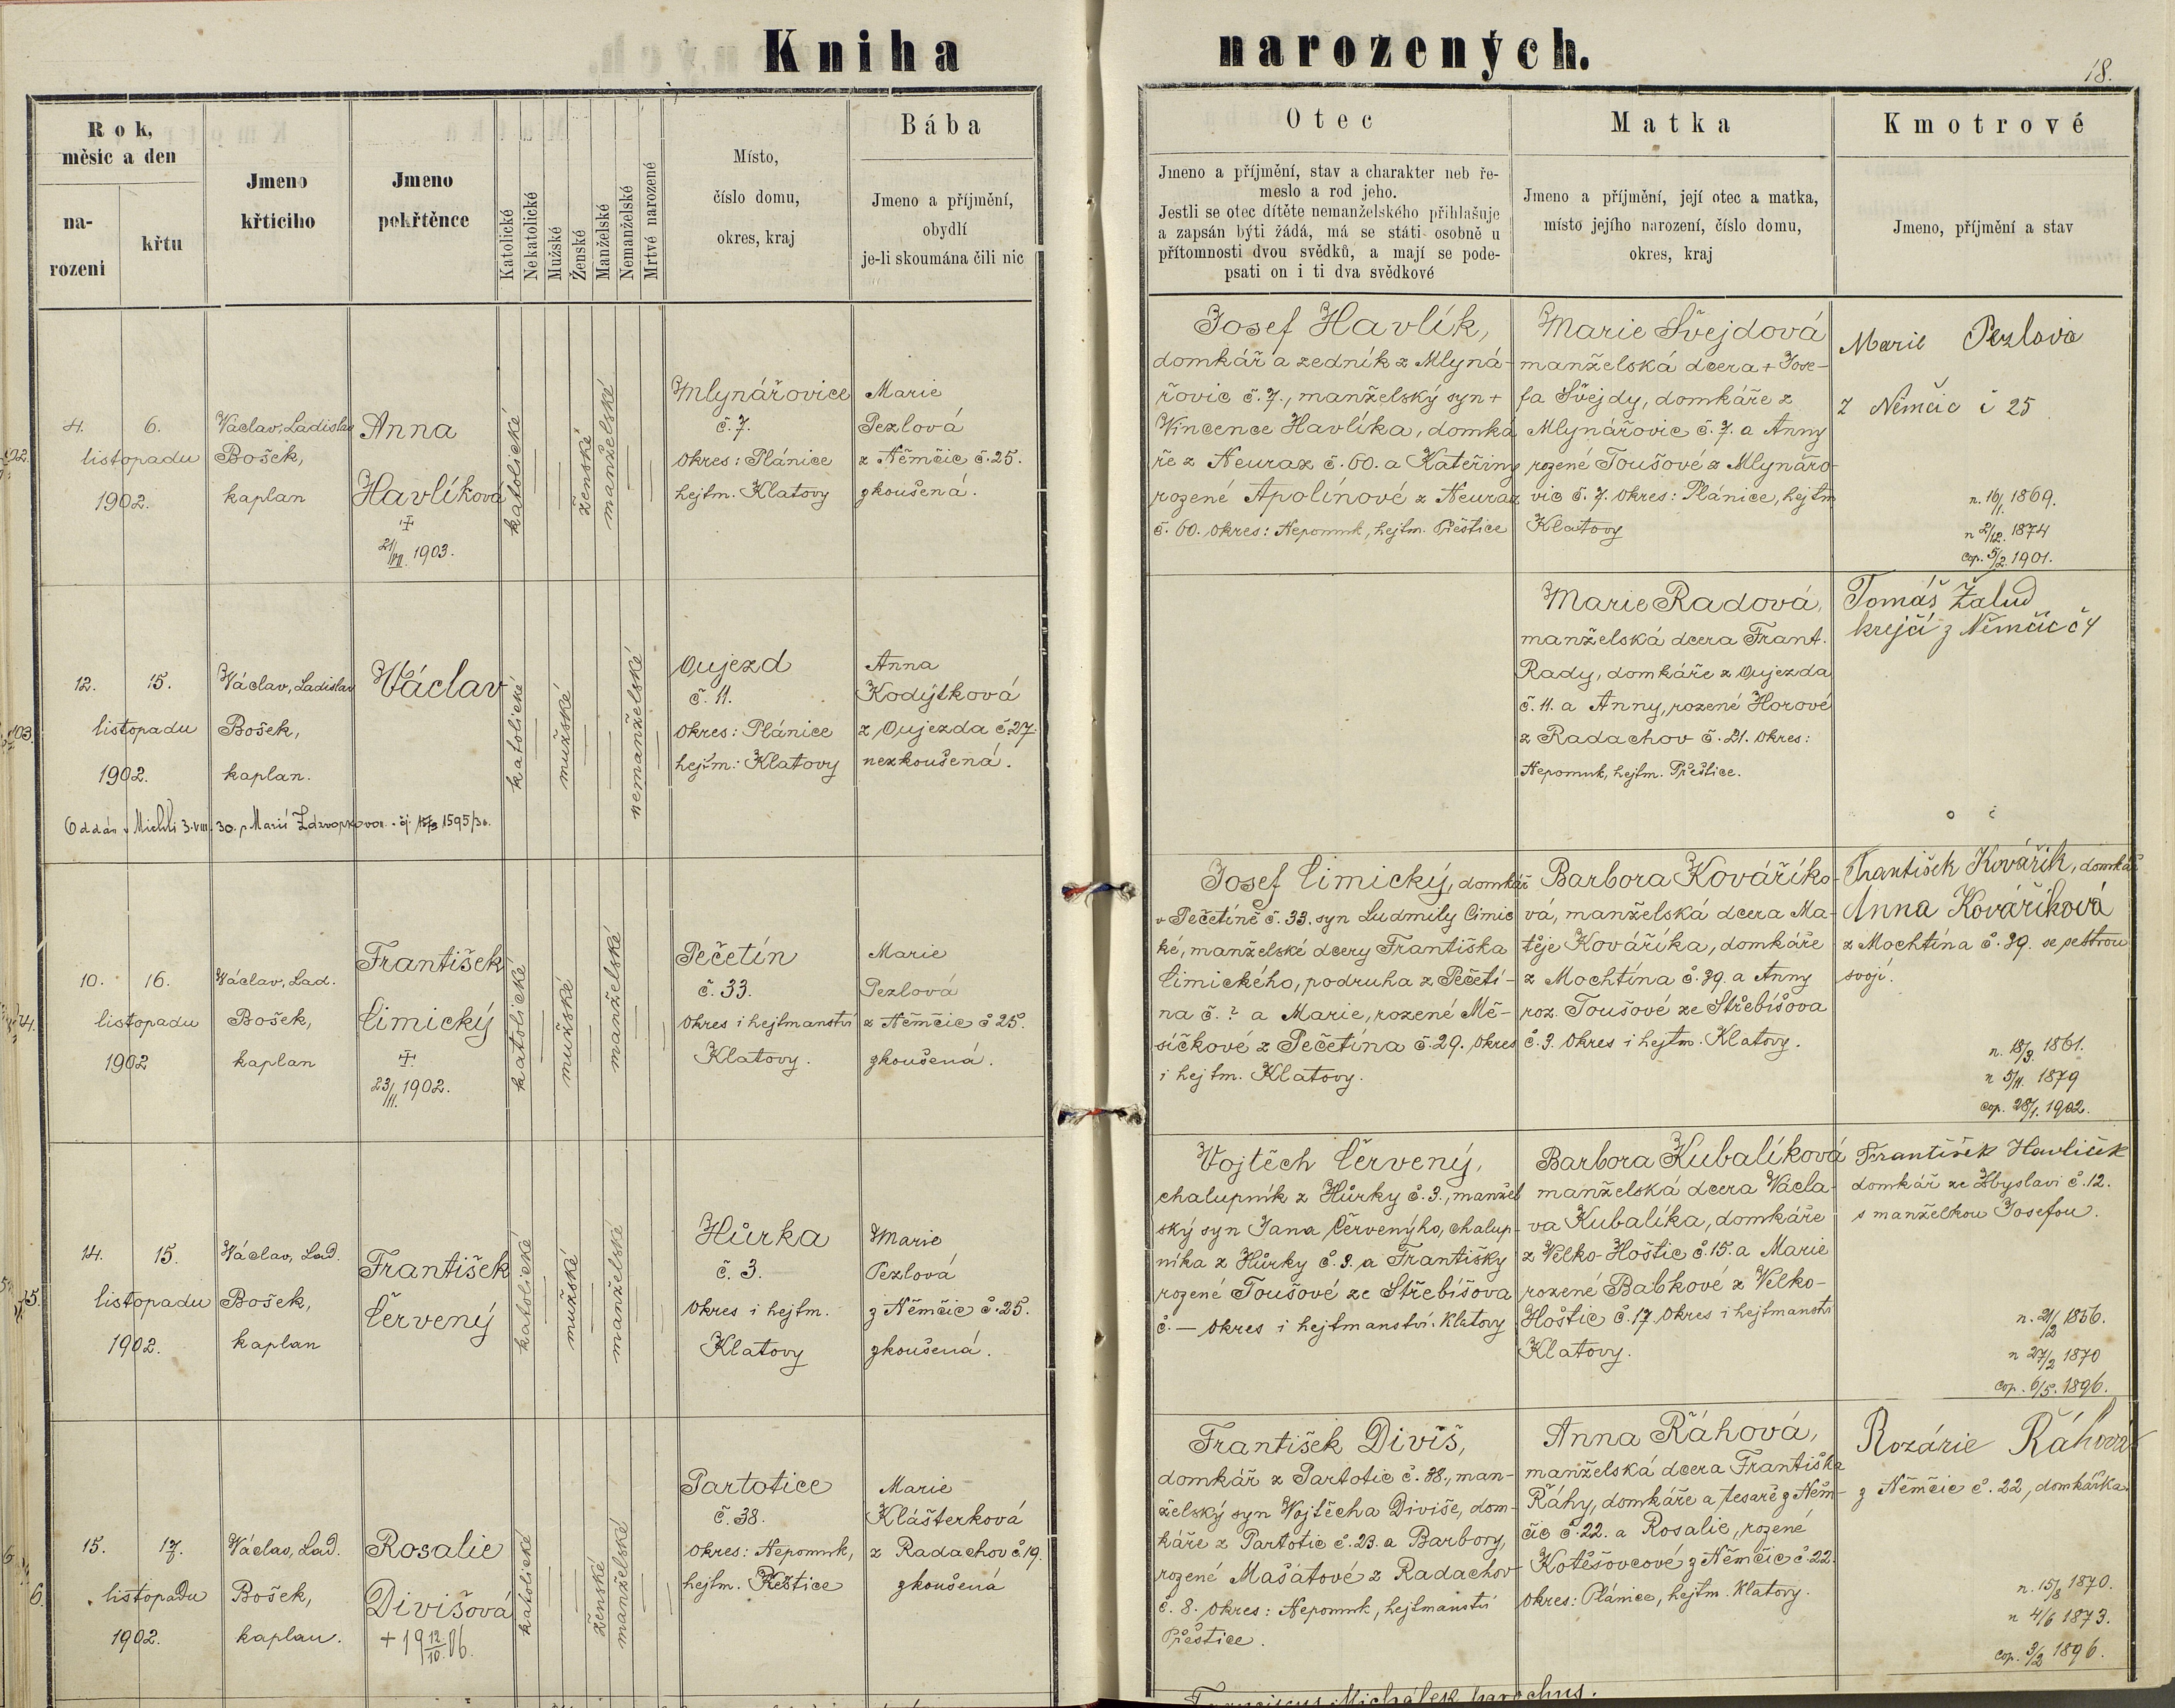 Kniha narozených.
18.
Rok, měsíc a den
na-
rození
křtu
Jmeno
křticího
Jmeno
pokřtěnce
Katolické
Nekatolické
Mužské
Ženské
Manželské
Nemanželské
Mrtvé narozené
Místo,
číslo domu,
okres, kraj
Bába
Jmeno a příjmění,
obydlí
je-li skoumána čili nic
Otec
Jmeno a příjmění, stav a charakter neb ře-
meslo a rod jeho.
Jestli se otec dítěte nemanželského přihlašuje
a zapsán býti žádá, má se státi osobně u
přítomnosti dvou svědků, a mají se pode-
psati on i ti dva svědkové
Matka
Jmeno a příjmění, její otec a matka,
místo jejího narození, číslo domu,
okres, kraj
Kmotrové
Jmeno, příjmění a stav
4. 6.
listopadu
1902.
Václav, Ladislav
Bošek,
kaplan
Anna
Havlíková
21/VII. 1903.
katolické
ženské
manželské
Mlynářovice
č. 7.
Okres: Plánice
hejtm. Klatovy
Marie
Pezlová
z Němčic č. 25.
zkoušená.
Josef Havlík,
domkář a zedník z Mlyná-
řovic č. 7., manželský syn +
Vincence Havlíka, domká
ře z Neuraz č. 60. a Kateřiny
rozené Apolínové z Neuraz
č. 60. Okres: Nepomuk, hejtm. Přeštice
Marie Švejdová
manželská dcera + Jose-
fa Švejdy, domkáře z
Mlynářovic č. 7. a Anny
rozené Toušové z Mlynářo-
vic č. 7. Okres: Plánice, hejtm
Klatovy
Marie Pezlova
z Němčic č 25
n. 16/1. 1869.
n 2/12. 1874
cop. 5/2. 1901.
103.
12. 15.
listopadu
1902.
Václav, Ladislav
Bošek,
kaplan.
Václav
katolické
mužské
nemanželské
Oujezd
č. 11.
Okres: Plánice
hejtm.: Klatovy
Anna
Kodýtková
z Oujezda č. 27.
nezkoušená.
Marie Radová,
manželská dcera Frant.
Rady, domkáře z Oujezda
č. 11. a Anny, rozené Horové
z Radachov č. 21. Okres:
Nepomuk, hejtm. Přeštice.
Tomáš Žalud
krejčí z Němčic č 4
Oddán v Michli 3. VIII. 30. s Marií
10. 16.
listopadu
1902
Václav, Lad.
Bošek,
kaplan
František
Cimický
23/11. 1902.
katolické
mužské
manželské
Pečetín
č. 33.
Okres i hejtmanství
Klatovy.
Marie
Pezlová
z Němčic č 25.
zkoušená.
Josef Cimický, domkář
v Pečetíně č. 33. syn Ludmily Cimic
ké, manželské dcery Františka
Cimického, podruha z Pečetí-
na č. ? a Marie, rozené Mě-
síčkové z Pečetína č. 29. Okres
i hejtm. Klatovy.
Barbora Kováříko-
vá, manželská dcera Ma-
těje Kováříka, domkáře
z Mochtína č. 39. a Anny
roz. Toušové ze Střebíšova
č. 3. Okres i hejtm. Klatovy.
František Kovářik, domkář
Anna Kováříková
z Mochtína č. 39. se sestrou
svojí.
n. 18/3. 1861.
n 5/11. 1879
cop. 28/1. 1902.
14. 15.
listopadu
1902.
Václav, Lad.
Bošek,
kaplan
František
Červený
katolické
mužské
manželské
Hůrka
č. 3.
Okres i hejtm.
Klatovy
Marie
Pezlová
z Němčic č. 25.
zkoušená.
Vojtěch Červený,
chalupník z Hůrky č. 3., manžel
ský syn Jana Červenýho, chalup-
níka z Hůrky č. 3. a Františky
rozené Toušové ze Střebíšova
č. — Okres i hejtmanství. Klatovy
Barbora Kubalíková
manželská dcera Václa-
va Kubalíka, domkáře
z Velko-Hoštic č. 15. a Marie
rozené Babkové z Velko-
Hoštic č. 17. Okres i hejtmanství
Klatovy.
František Havlíček
domkář ze Zbyslavi č. 12.
s manželkou Josefou.
n. 21/2 1856.
n 27/2 1870
cop. 6/5. 1896.
6.
15. 17.
listopadu
1902.
Václav, Lad.
Bošek,
kaplan.
Rosalie
Divišová
+ 19 12/10. 06.
katolické
ženské
manželské
Partotice
č. 38.
Okres: Nepomuk,
hejtm. Přeštice
Marie
Klášterková
z Radachov č. 19.
zkoušená
František Diviš,
domkář z Partotic č. 38., man-
želský syn Vojtěcha Diviše, dom-
káře z Partotic č. 23. a Barbory,
rozené Mašátové z Radachov
č. 8. Okres: Nepomuk, hejtmanství
Přeštice.
Anna Řáhová,
manželská dcera Františka
Řáhy, domkáře a tesaře z Něm-
čic č. 22. a Rosalie, rozené
Kotěšovcové z Němčic č. 22.
Okres: Plánice, hejtm. Klatovy.
Rozárie Řáhová
z Němčic č. 22, domkářka.
n. 15/8 1870.
n 4/6 1873.
cop. 3/2 1896.
Franciscus Michálek parochus.